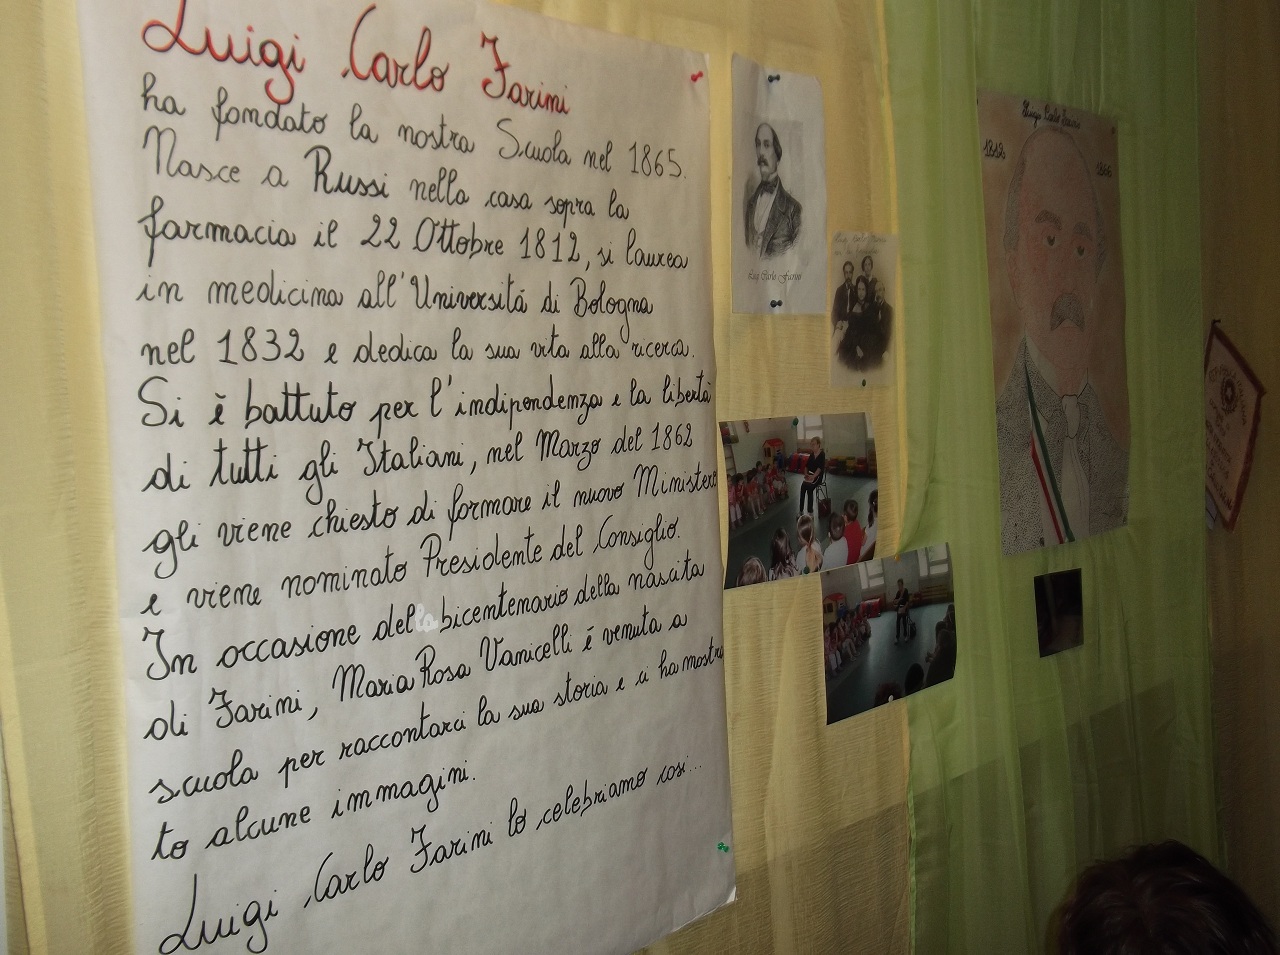 Luigi Carlo Farini
ha fondato la nostra Scuola nel 1865.
Nasce a Russi nella casa sopra la
farmacia il 22 Ottobre 1812, si laurea
in medicina all'Universitá di Bologna
nel 1832 e dedica la sua vita alla ricerca.
Si è battuto per l'indipendenza e la libertà
di tutti gli Italiani, nel Marzo del 1862
gli viene chiesto di formare il nuovo Ministero
e viene nominato Presidente del Consiglio.
In occasione del bicentenario della nascita
di Farini, Maria Rosa Vanicelli é venuta a
scuola per raccontarci la sua storia e ci ha mostra
to alcune immagini.
Luigi Carlo Farini lo celebriamo cosi...
Luigi Carlo Farini
Luigi Carlo Farini
1812
1866